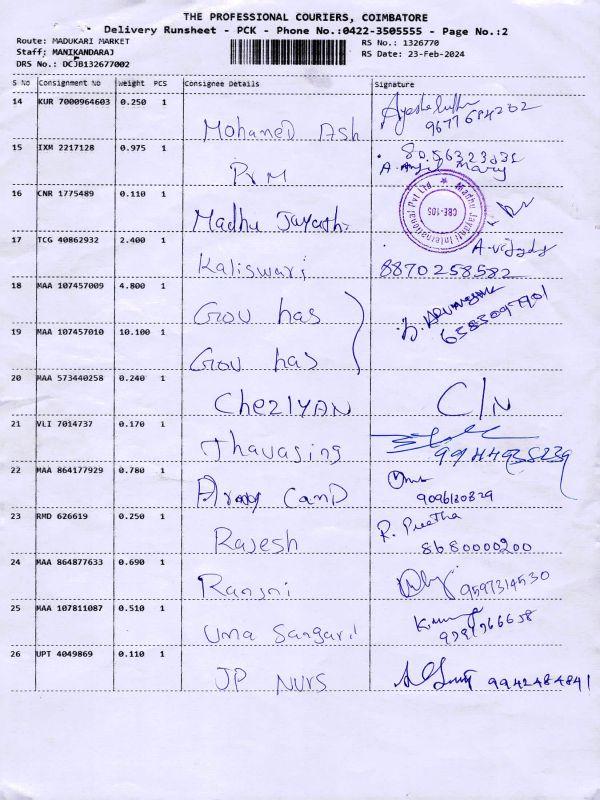 THE PROFESSIONAL COURIERS, COIMBATORE
Delivery Runsheet - PCK - Phone No.:0422-3505555 - Page No.:2
Route: MADUKARI MARKET
RS No.: 1326770
Staff: MANIKANDARAJ
RS Date: 23-Feb-2024
DRS No.: DCJB132677002
S No Consignment No Weight PCS Consignee Details Signature
14 KUR 7000964603 0.250 1 Mohamed Ash
15 IXM 2217128 0.975 1 8056323231
16 CNR 1775489 0.110 1 Madhu Jayanthi
Madhu Jayanti International Pvt Ltd. CBE-105
17 TCG 40862932 2.400 1 Kaliswari 8870258582
18 MAA 107457009 4.800 1 Gou has
19 MAA 107457010 10.100 1 Gou has
20 MAA 573440258 0.240 1 CHezIYAN C/N
21 VLI 7014737 0.170 1 Thavasing
22 MAA 864177929 0.780 1 CanD
23 RMD 626619 0.250 1 Rajesh R. Preetha 8680000200
24 MAA 864877633 0.690 1 9597314530
25 MAA 107811087 0.510 1 Uma
26 UPT 4049869 0.110 1 JP NURS 9942484841